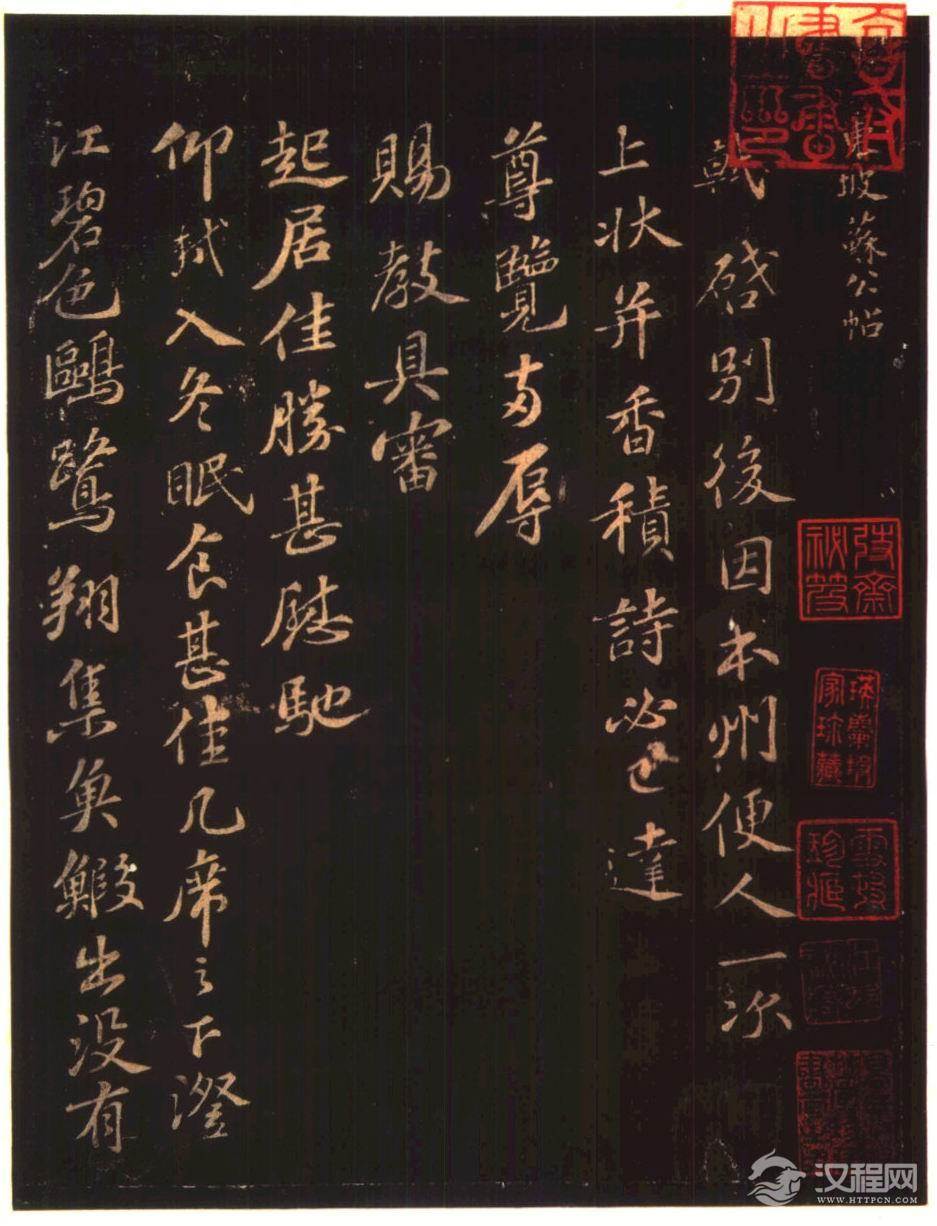 東坡蘇公帖
軾啓別後因本州便人一次
上状并香積詩必已達
尊覽专辱
賜教具審
起居佳勝甚慰馳
仰軾入冬眠食甚佳几席之下澄
江碧色鷗鷺翔集魚鰕出没有
汉程网
WWW.HTTPCN.COM